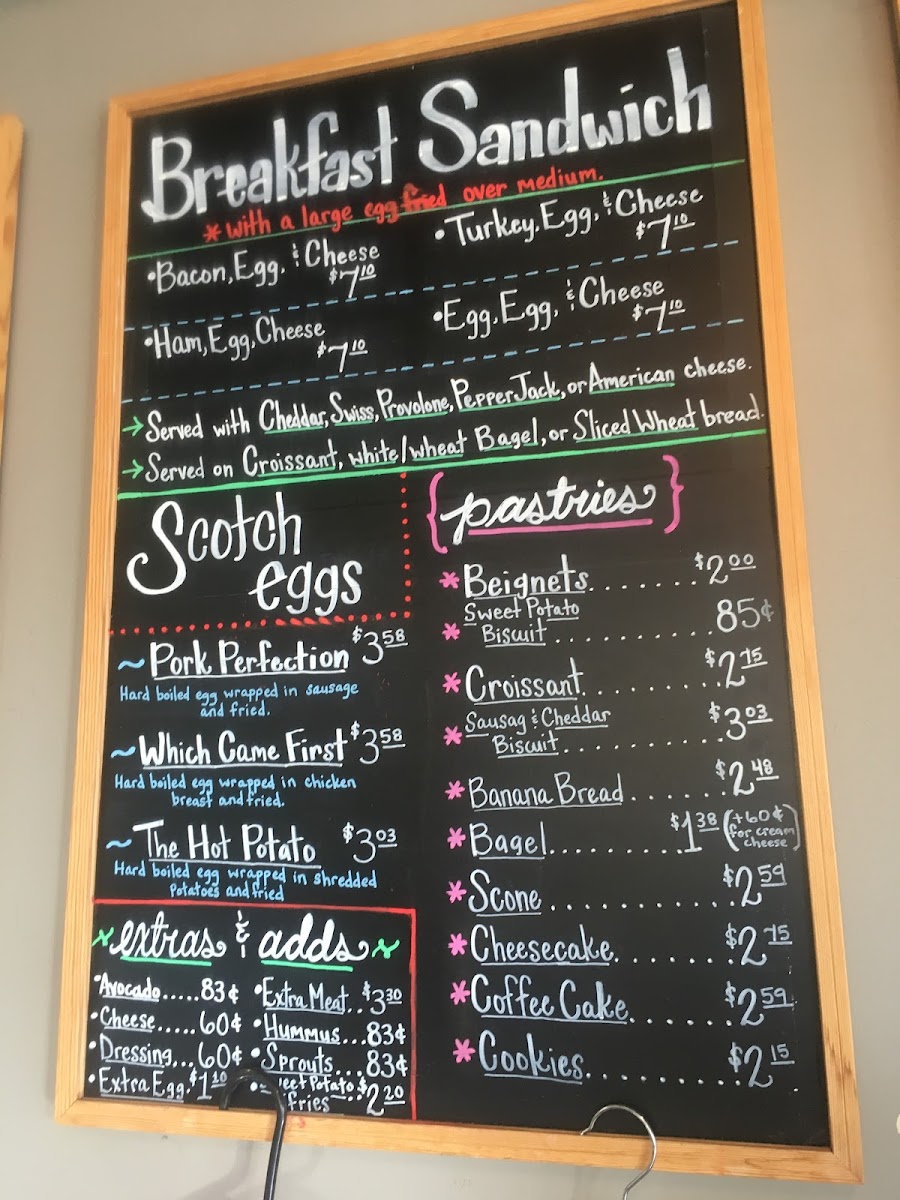 Breakfast Sandwich
* with a large egg fried over medium.
•Bacon, Egg, & Cheese
$7.10
•Turkey, Egg, & Cheese
$7.10
•Ham, Egg, Cheese
$7.10
•Egg, Egg, & Cheese
$7.10
→Served with Cheddar, Swiss, Provolone, Pepper Jack, or American cheese.
→Served on Croissant, white/wheat Bagel, or Sliced Wheat bread.
Scotch
eggs
~ Pork Perfection $3.58
Hard boiled egg wrapped in sausage
and fried.
~ Which Came First $3.58
Hard boiled egg wrapped in chicken
breast and fried.
~ The Hot Potato $3.03
Hard boiled egg wrapped in shredded
Potatoes and fried
extras & adds
•Avocado.....83¢
•Cheese.....60¢
•Dressing...60¢
•Extra Egg.$1.10
•Extra Meat..$3.30
•Hummus...83¢
•Sprouts....83¢
Potato..$2.20
fries
{pastries}
* Beignets.......$2.00
* Sweet Potato
Biscuit............85¢
* Croissant........$2.75
* Sausag & Cheddar
Biscuit............$3.03
* Banana Bread......$2.48
* Bagel.........$1.38 (+60¢
for cream
cheese)
* Scone...........$2.59
* Cheesecake.......$2.75
* Coffee Cake......$2.59
* Cookies..........$2.15